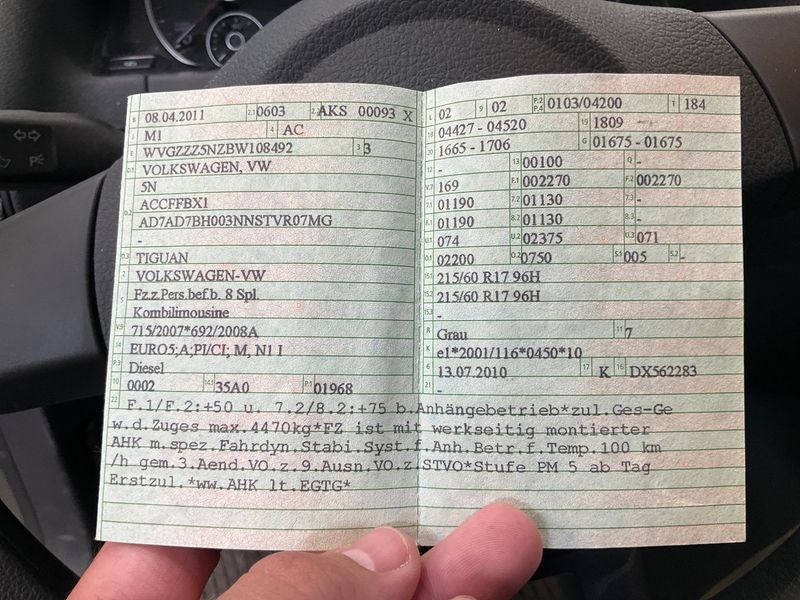 B 08.04.2011 2.1 0603 2.2 AKS 00093 X
J M1 4 AC
E WVGZZZ5NZBW108492 3 3
D.1 VOLKSWAGEN, VW
5N
D.2 ACCFFBX1
AD7AD7BH003NNSTVR07MG
-
D.3 TIGUAN
2 VOLKSWAGEN-VW
5 Fz.z.Pers.bef.b. 8 Spl.
Kombilimousine
V.9 715/2007*692/2008A
14 EURO5;A;PI/CI; M, N1 I
P.3 Diesel
10 0002 14.1 35A0 P.1 01968
L 02 9 02 P.2 P.4 0103/04200 T 184
18 04427 - 04520 19 1809 -
20 1665 - 1706 G 01675 - 01675
12 - 13 00100 Q -
V.7 169 F.1 002270 F.2 002270
7.1 01190 7.2 01130 7.3 -
8.1 01190 8.2 01130 8.3 -
U.1 074 U.2 02375 U.3 071
O.1 02200 O.2 0750 S.1 005 S.2 -
15.1 215/60 R17 96H
15.2 215/60 R17 96H
15.3 -
R Grau 11 7
K e1*2001/116*0450*10
6 13.07.2010 17 K 16 DX562283
21 -
22 F.1/F.2:+50 u. 7.2/8.2:+75 b.Anhängebetrieb*zul.Ges-Ge
w.d.Zuges max.4470kg*FZ ist mit werkseitig montierter
AHK m.spez.Fahrdyn.Stabi.Syst.f.Anh.Betr.f.Temp.100 km
/h gem.3.Aend.VO.z.9.Ausn.VO.z.STVO*Stufe PM 5 ab Tag
Erstzul.*ww.AHK lt.EGTG*